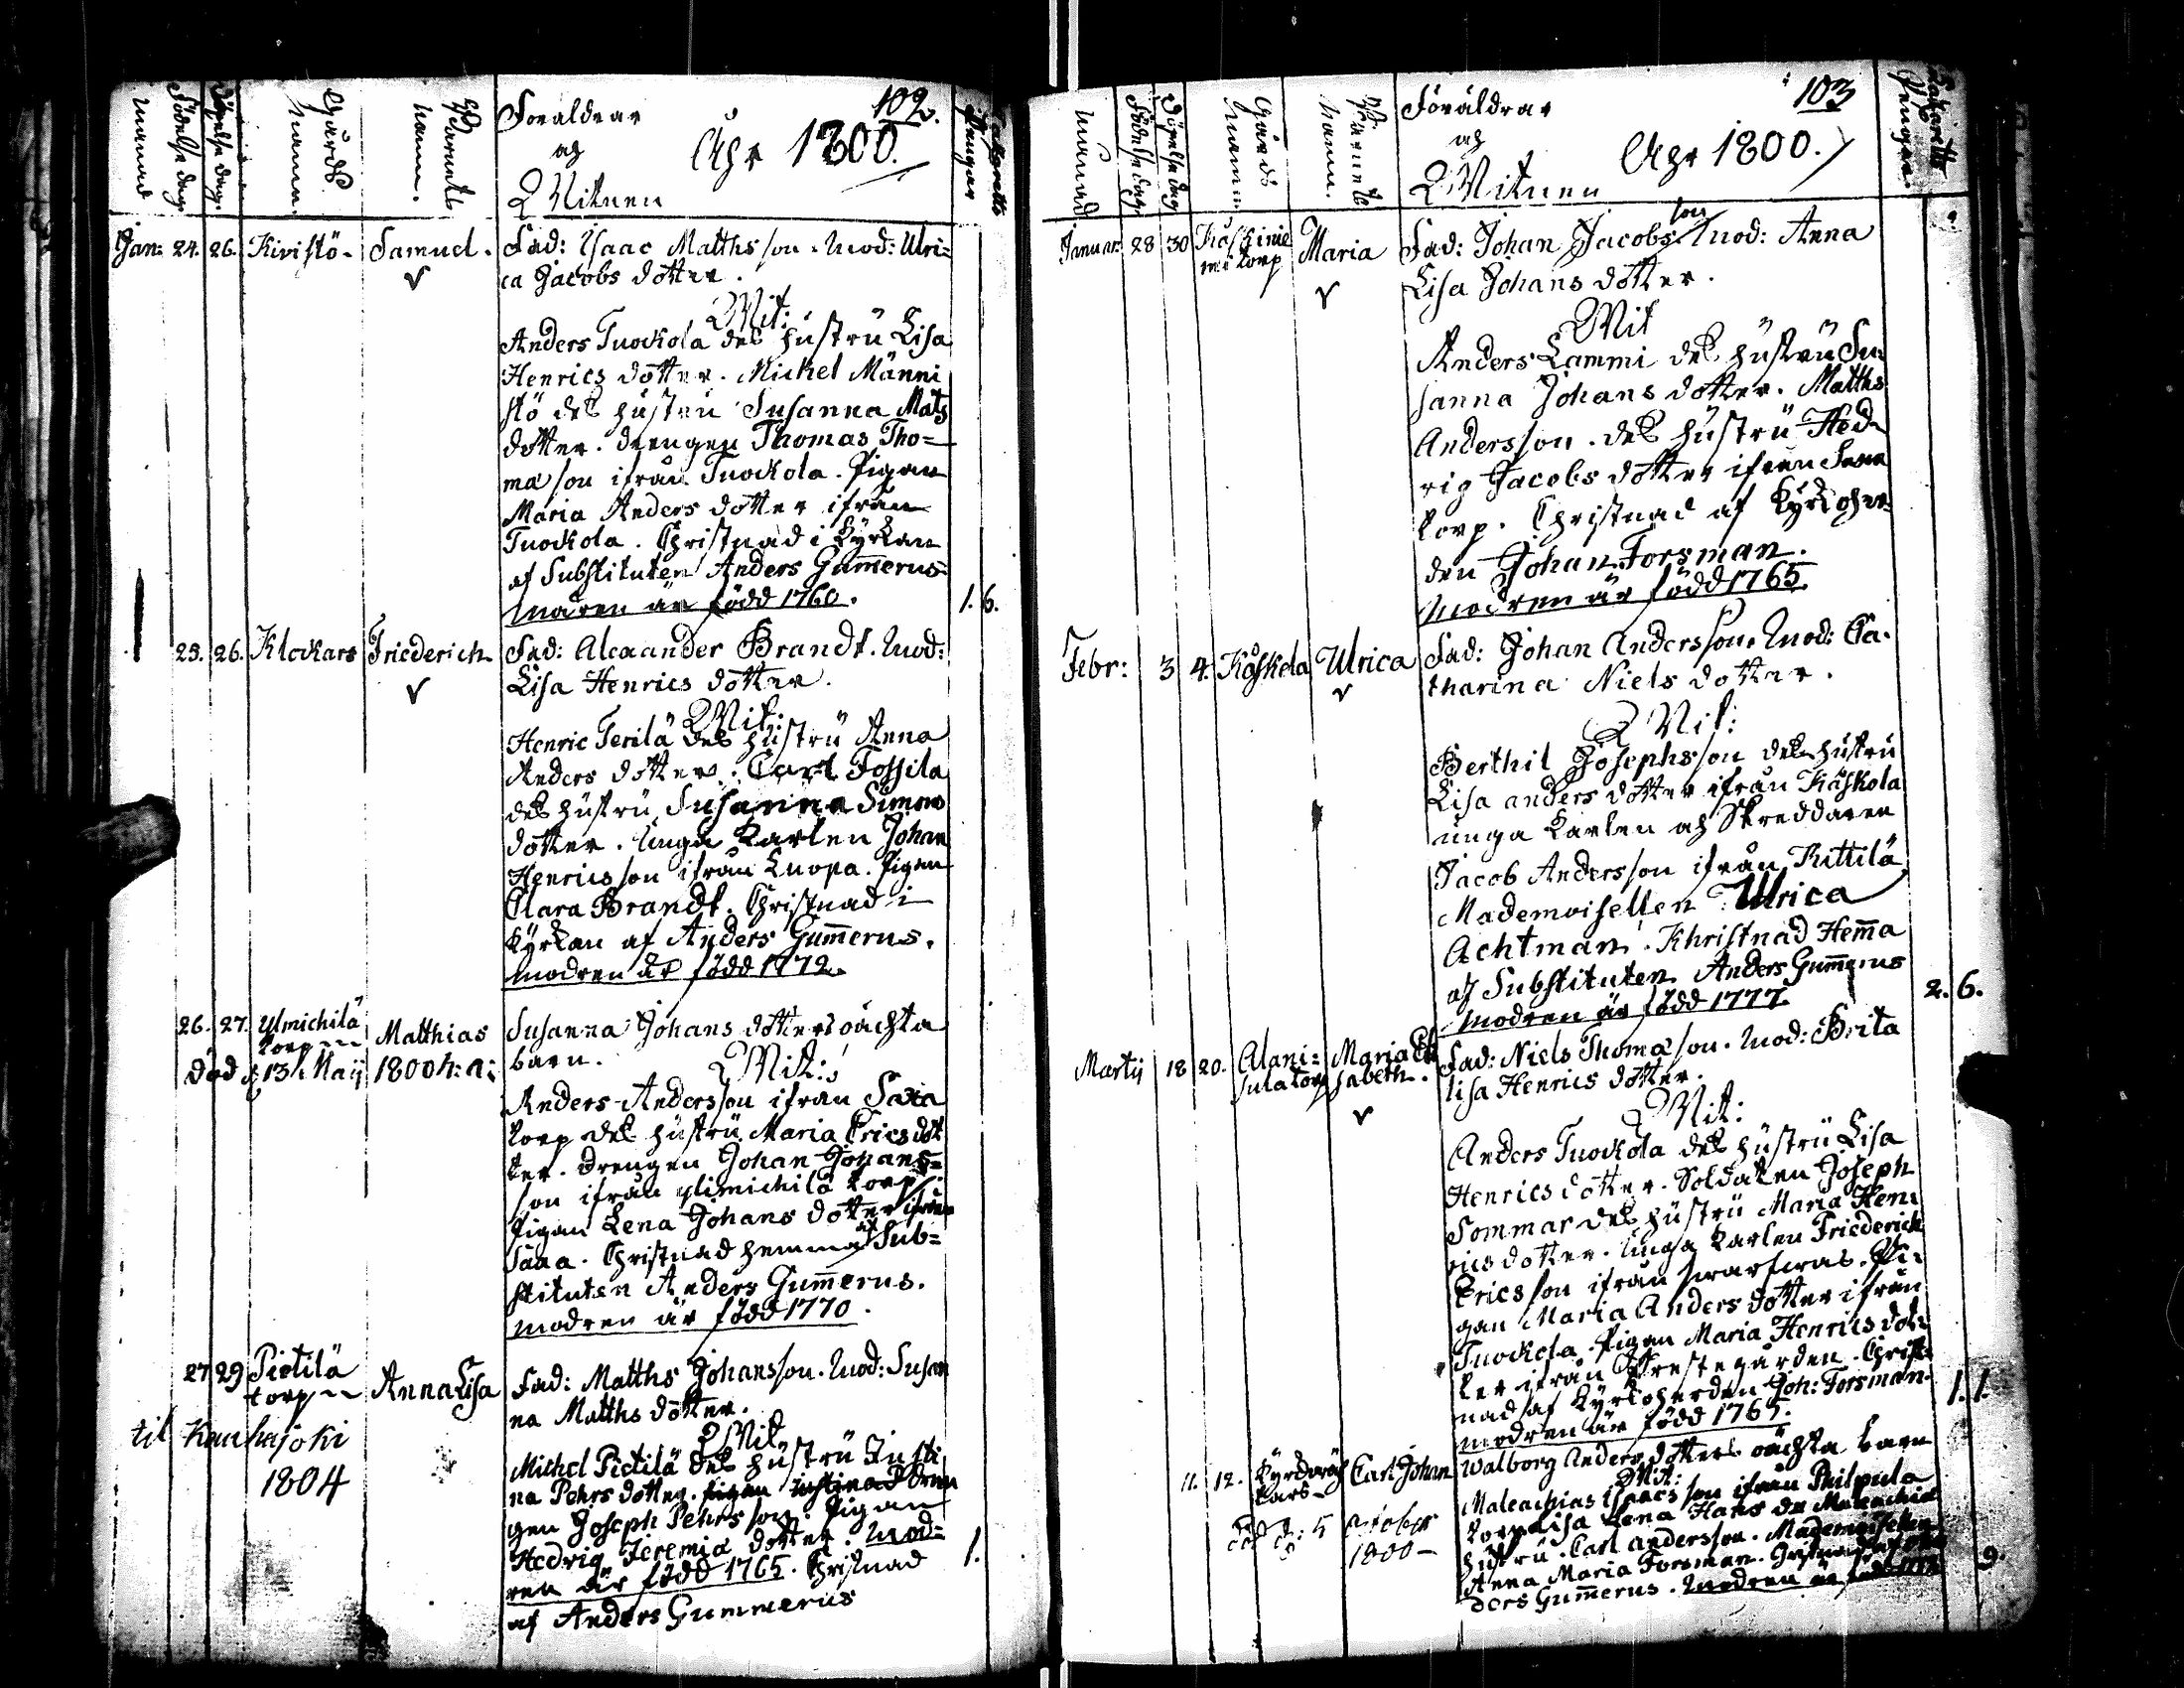 102.
månad
Födelse dag.
Döpelse dag.
Gårds Namn.
Barnets namn.
Föräldrar
och
Witnen
Åhr 1800.
Lazaretts Pengar
Jan: 24. 26. Kivistö. Samuel. Fad: Isaac Matthsson. Mod: Ulri=
ca Jacobs dotter.
Wit:
Anders Tuockola des hustru Lisa
Henrics dotter. Michel Männi
stö des hustru Susanna Mats
dotter. drengen Thomas Tho=
mæ son ifrån Tuockola. Pigan
Maria Anders dotter ifrån
Tuockola. Christnad i Kyrkan
af Substituten Anders Gum̄erus
modren är född 1760. 1. 6.
25. 26. Klockars Friederich Fad: Alexander Brandt. Mod:
Lisa Henrics dotter.
Wit:
Henric Terilä des hustru Anna
Anders dotter. Carl Fossila
des hustru Susanna Simons
dotter. Unga Karlen Johan
Henricsson ifrån Luopa. Pigan
Clara Brandt. Christnad i
Kyrkan af Anders Gum̄erus.
modren är född 1772.
26. 27. Ylmichilä torp Matthias Susanna Johans dotters oächta
död d. 13 Maij 1800 h: a: barn.
Wit:
Anders Andersson ifrån Saxa
torp des hustru Maria Erics dot
ter. drengen Johan Johans=
son ifrån ylimichilä torp
Pigan Lena Johans dotter ifrån
Saxa. Christnad hemma af Sub=
stituten Anders Gum̄erus.
modren är född 1770.
27 29 Pietilä torp Anna Lisa Fad: Matths Johansson. Mod: Susan
na Matths dotter.
til Kauhajoki
1804
Wit
Michel Pietilä des hustru Justi
na Pehrs dotter. drän
gen Joseph Pehrsson. Pigan
Hedvig Jeremiæ dotter. Mod=
ren är född 1765. Christnad 1.
af Anders Gummerus
103
månad
Födelse dag
Döpelse dag
Gårds Namn
Barnets namn.
Föräldrar
och
Witnen
Åhr 1800.
Lazaretts Pengar.
Januar: 28 30 torp Maria Fad: Johan Jacobs son Mod: Anna
Lisa Johans dotter.
Wit
Anders Lammi des hustru Su=
sanna Johans dotter. Matths
Andersson. des hustru Hed=
vig Jacobs dotter ifrån Saxa
torp. Christnad af Kyrkoher=
den Johan Forsman.
Modren är född 1765.
Febr: 3 4. Koskela Ulrica Fad: Johan Andersson. Mod: Ca=
tharina Niels dotter.
Wit:
Berthil Josephsson des hustru
Lisa anders dotter ifrån Koskela
unga Karlen och Skreddaren
Jacob Andersson ifrån Kittilä
Mademoisellen Ulrica
Achtman. Khristnad Hem̄a
af Substituten Anders Gum̄erus 2. 6.
Modren är född 1777.
Martij 18 20. Alani=
sula torp Maria Eli
sabeth. Fad: Niels Thomæ son. Mod: Brita
lisa Henrics dotter.
Wit:
Anders Tuockola des hustru Lisa
Henrics dotter. Soldaten Joseph
Sommar des hustru Maria Hen=
rics dotter. Unga Karlen Friederich
Ericsson ifrån Pi=
gan Maria Anders dotter ifrån
Tuockola. Pigan Maria Henrics dot=
ter ifrån Prestegården. Christ=
nad af Kyrkoherden Joh: Forsman. 1. 1.
modren är född 1765.
11. 12. Carl Johan Walborg Anders dotters oächta barn
död d: 5 October
1800
Wit:
Maleachias Isaacs son ifrån Philpula
torp Lisa Lena Hans dr Maleachiæ
hustru. Carl andersson. Mademoisellen
Anna Maria Forsman. Christnad af An
ders Gum̄erus. Modren är född 9.